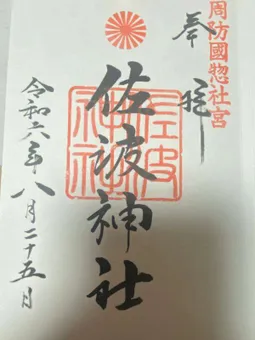 周防國惣社宮
奉拝
佐波神社
佐波神社
令和六年八月二十五日